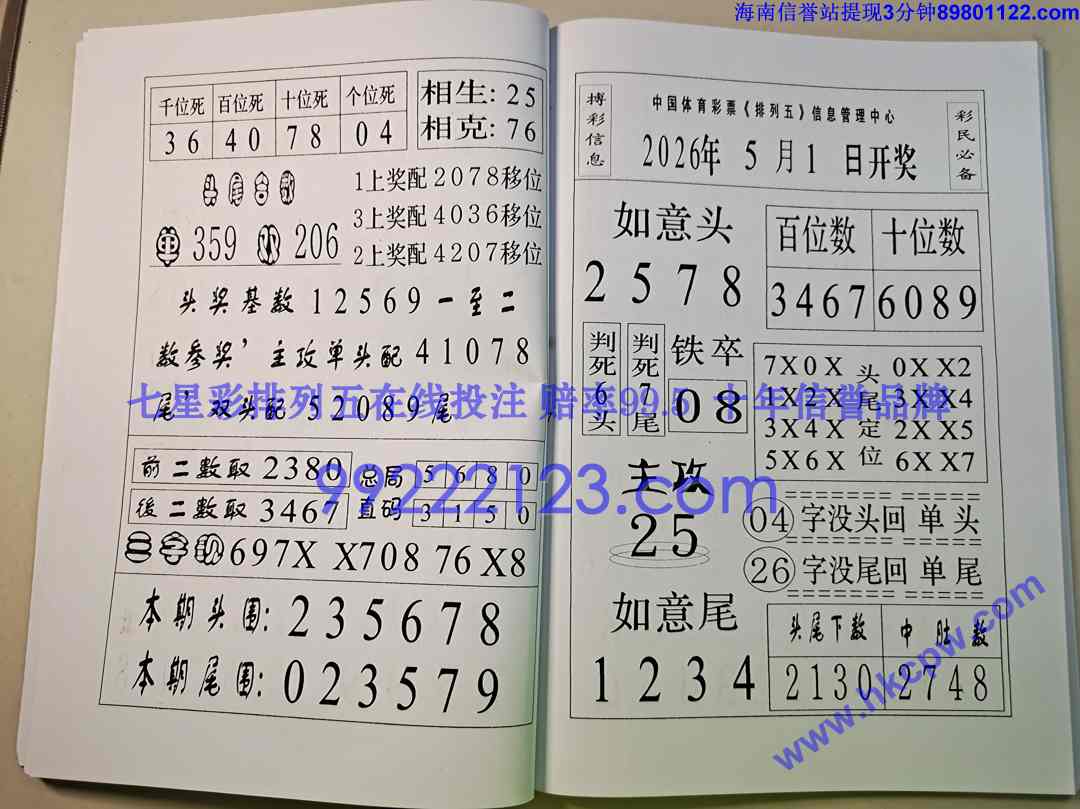 海南信誉站提现3分钟89801122.com
千位死 百位死 十位死 个位死
36 40 78 04
相生: 25
相克: 76
1上奖配2078移位
3上奖配4036移位
2上奖配4207移位
单 359 206
头奖基数12569一至二
数参奖’主攻单头配41078
尾’双头配52089尾
七星彩排列五在线投注 赔率99.5 十年信誉品牌
前二数取2380
後二数取3467
总局 5 6 8 0
直码 3 1 5 0
99222123.com
三字现697X X708 76X8
本期头围: 235678
本期尾围: 023579
搏彩信息
中国体育彩票《排列五》信息管理中心
2026年 5月1日开奖
彩民必备
如意头
2578
百位数 十位数
3467 6089
判死6头
判死7尾
铁卒
08
头尾定位
7X0X 0XX2
1X2X 3XX4
3X4X 2XX5
5X6X 6XX7
主攻
25
04字没头回单头
26字没尾回单尾
如意尾
1234
头尾下数 中肚数
2130 2748
www.hkcpw.com